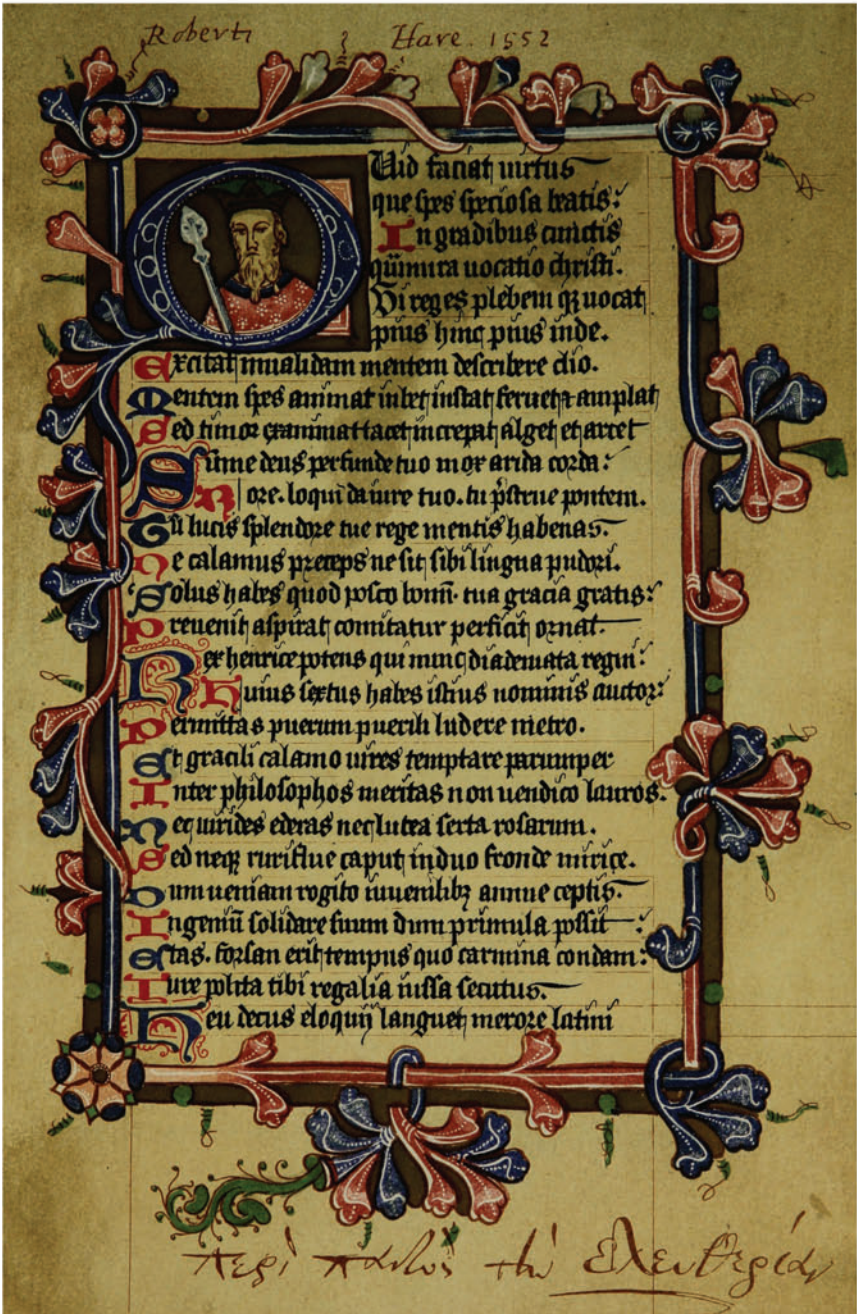 Roberti Hare. 1552
Quid faciat uirtus
que spes speciosa beatis:
In gradibus cunctis
qua mira uocatio christi.
Vi reges plebem qz uocat
pius hinc pius inde.
Excitat inualidam mentem describere clio.
Mentem spes animat iubet instat feruet & amplat
Sed timor exanimat tacet increpat alget et artet
Sume deus perfunde tuo mor arida corda:
Rore. loqui da iure tuo. tu pstrue pontem.
Tu lucis splendore tue rege mentis habenas.
Ne calamus preceps ne sit sibi lingua pudori.
Solus habes quod posco bonu. tua gracia gratis:
Preuenit aspirat comitatur perficit ornat.
Rex henrice potens qui nunc diademata regni:
Huius sextus habes istius nominis auctor:
Permittas puerum puerili ludere metro.
Et gracili calamo uires temptare parumper
Inter philosophos meritas non uendico lauros.
Nec uirides ederas nec lutea serta rosarum.
Sed neqz rurisflue caput induo fronde mirice.
Dum ueniam rogito iuuenilibz annue ceptis.
Ingeniu solidare suum dum primula possit:
Estas. forsan erit tempus quo carmina condam:
Iure polita tibi regalia iussa secutus.
Heu decus eloquij languet merore latini
περὶ παντὸς τὴν ἐλευθερίαν